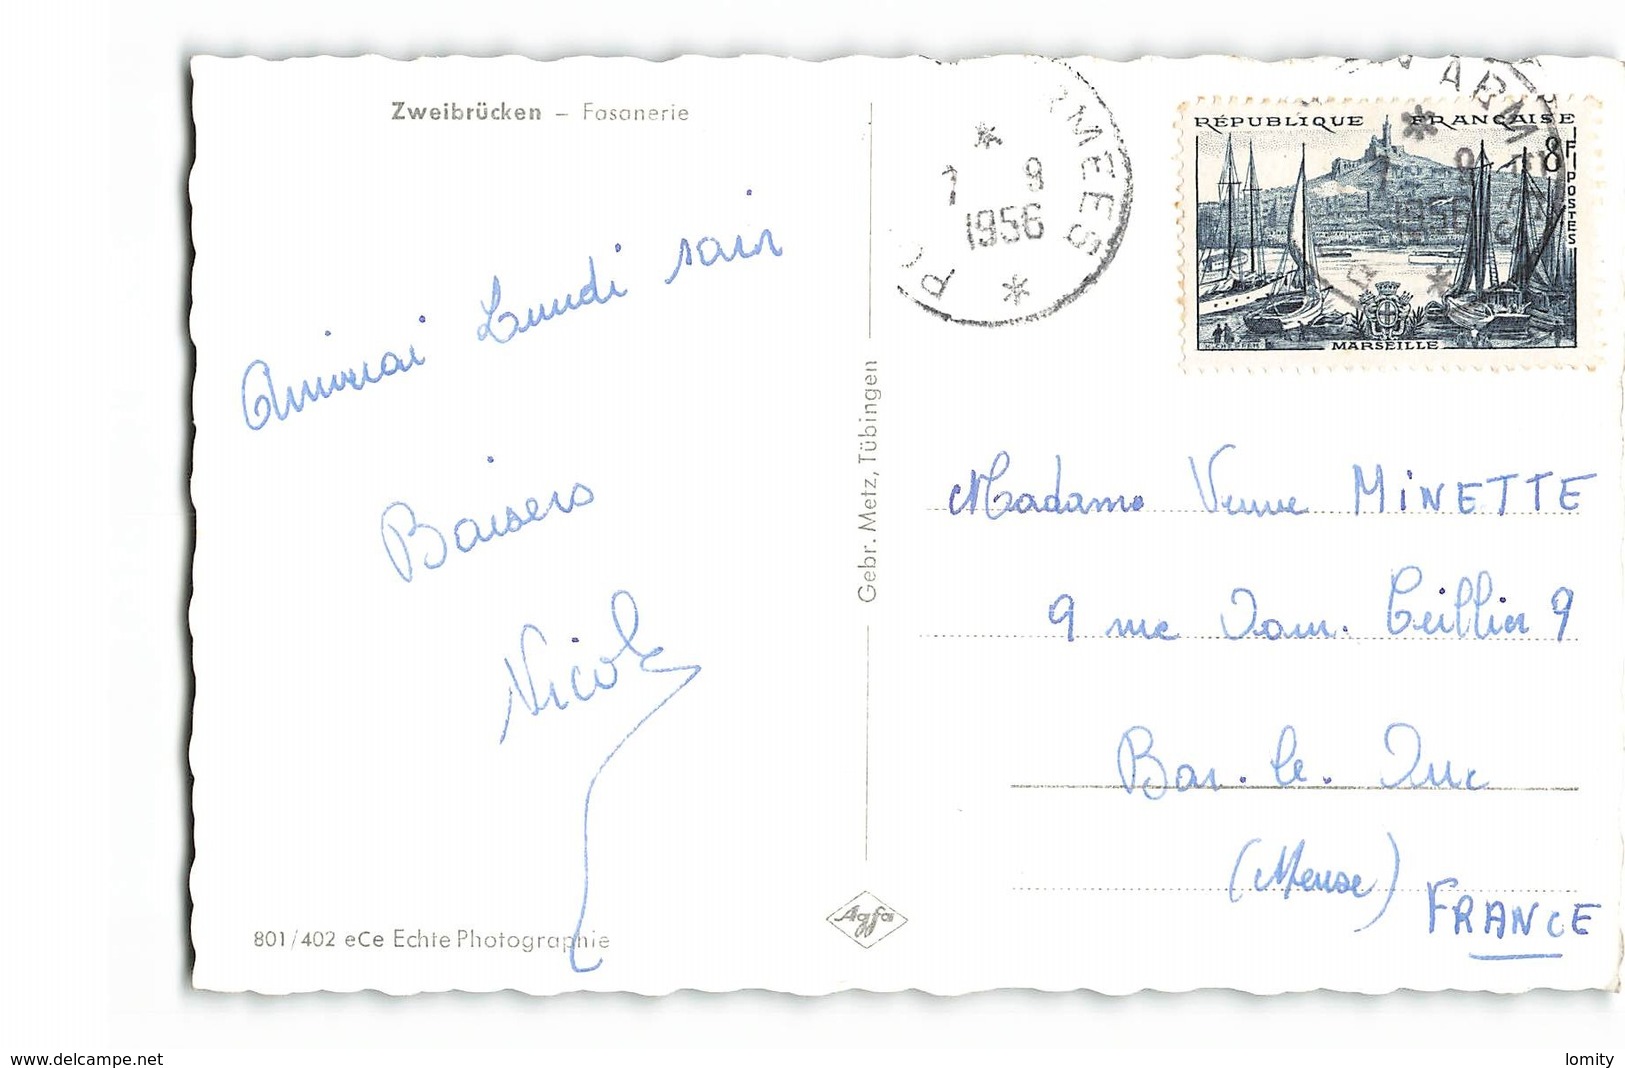 Zweibrücken – Fasanerie
Arriverai Lundi soir
Baisers
Nicole
801/402 eCe Echte Photographie
Gebr. Metz, Tübingen
Agfa
ARMEES
7 9
1956
RÉPUBLIQUE FRANÇAISE
8F
POSTES
MARSEILLE
Madame Veuve MINETTE
9 rue Dom. Ceillier 9
Bar. le. Duc
(Meuse)
FRANCE
www.delcampe.net
lomity